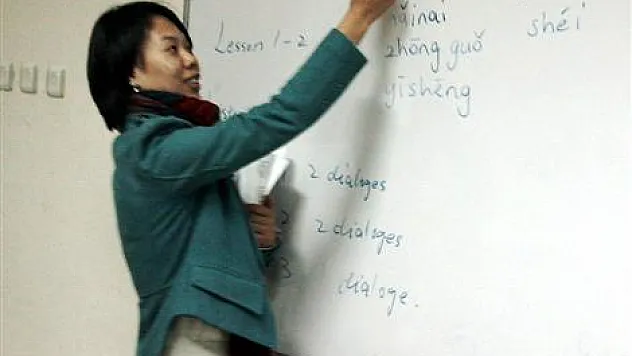 nǎinai
shéi
Lesson 1-2
zhōng guǒ
yīshēng
2 dialoges
2 2 dialoges
3 dialoge.